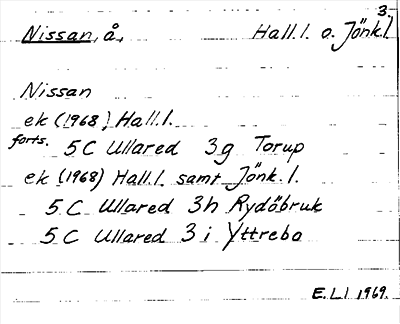 3.
Nissan, å, Hall. l. o. Jönk. l
Nissan
ek (1968) Hall. l.
forts. 5C Ullared 3g Torup
ek (1968) Hall. l. samt Jönk. l.
5C Ullared 3h Rydöbruk
5C Ullared 3i Yttrebo
E. L l 1969.